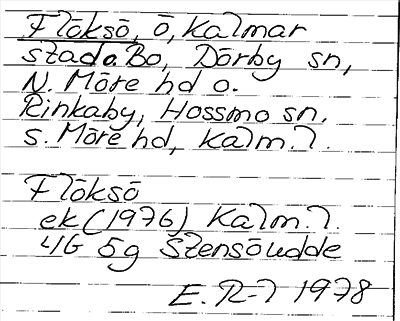 Flōksō, ō, Kalmar
stado. Bo, Dōrby sn,
N. Mōre hd o.
Rinkaby, Hossmo sn,
s. Mōre hd, Kalm. l.
Flōksō
ek (1976) Kalm. l.
4G 5g Stensōudde
E. R-l 1978